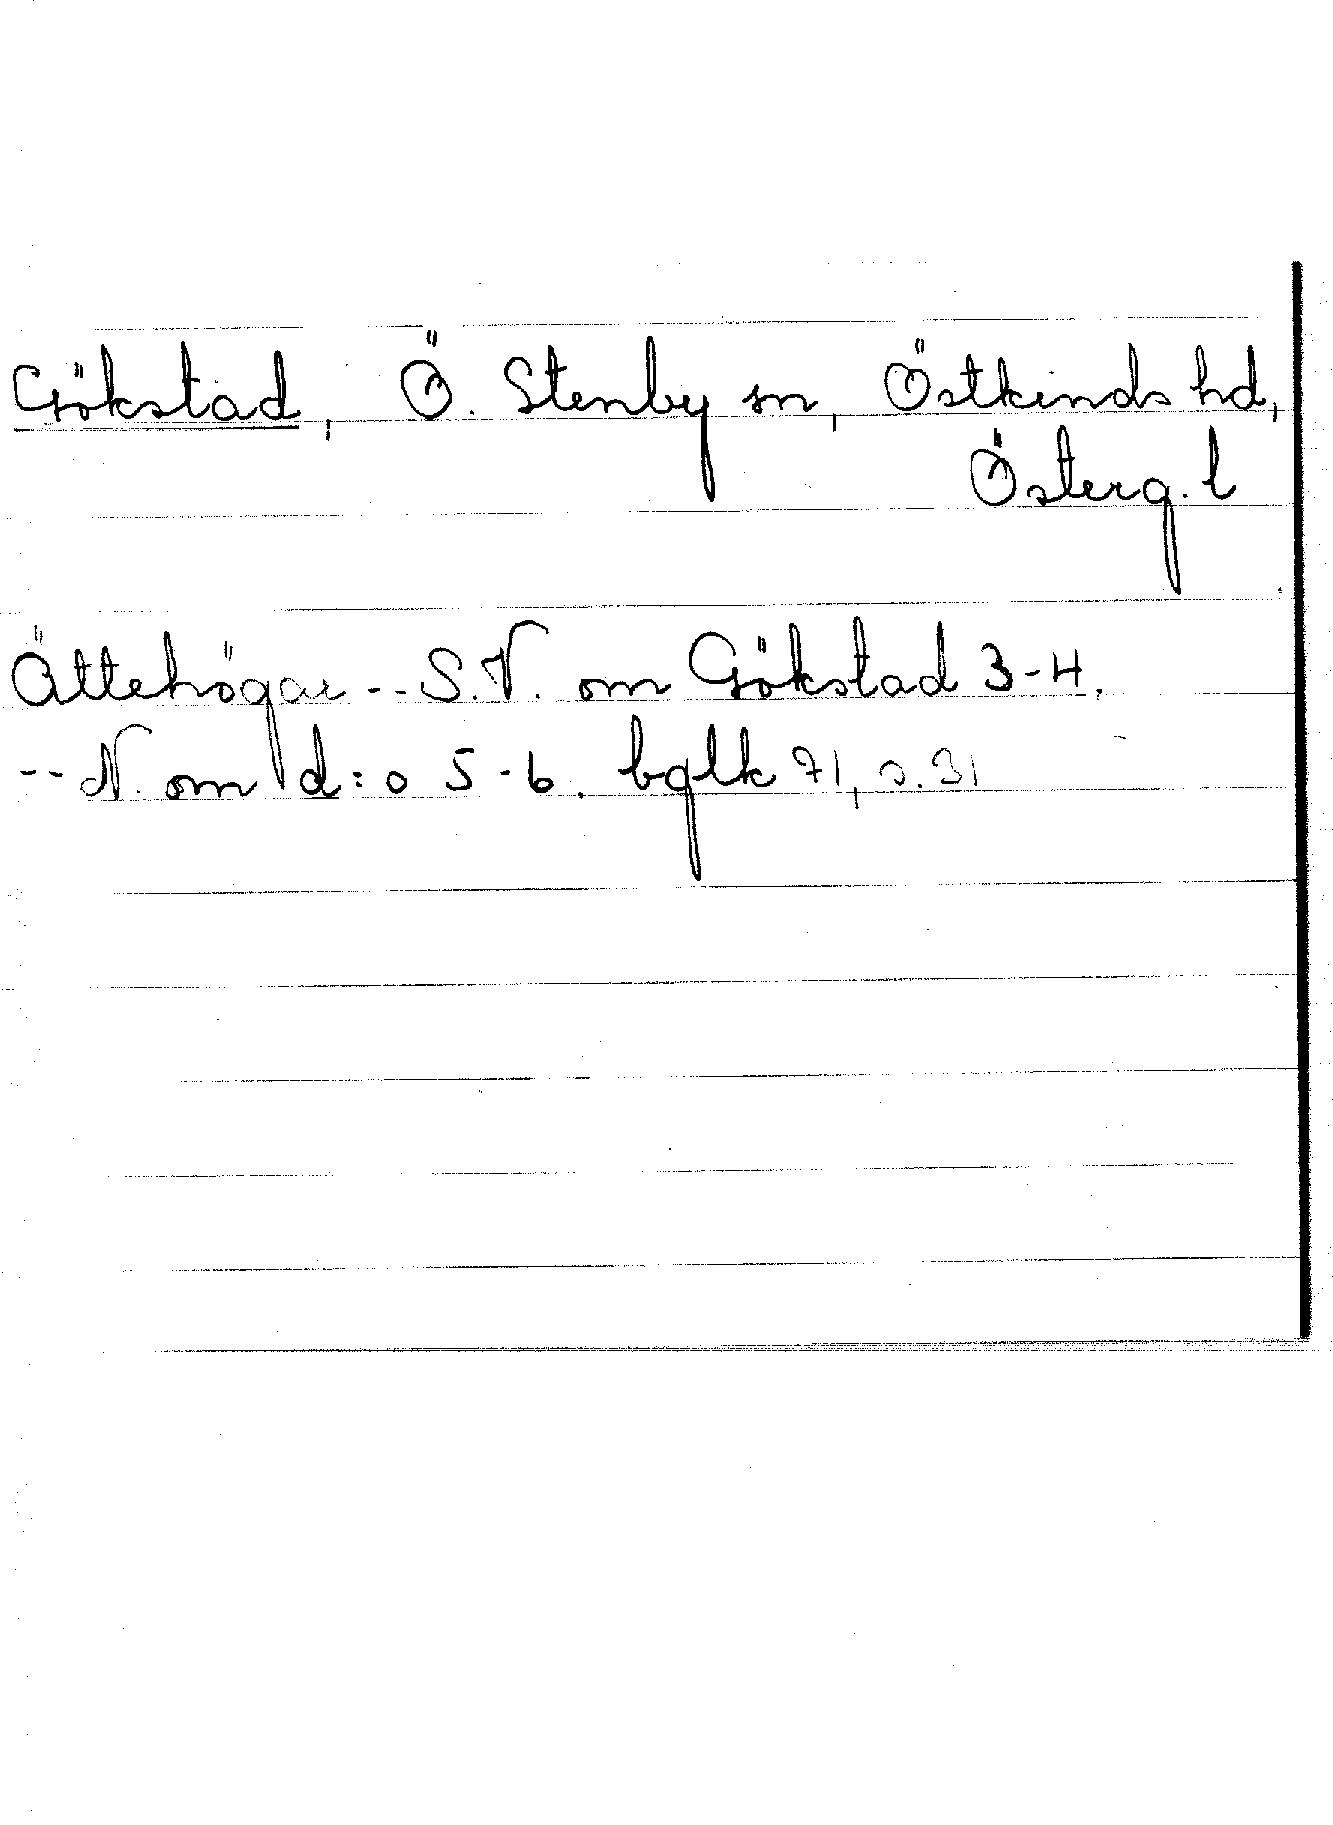 Gökstad, Ö. Stenby sn, Östkinds hd,
Österg. l
Ättehögar -- S.V. om Gökstad 3-4.
-- N. om d:o 5-6. bglk 71, s. 31